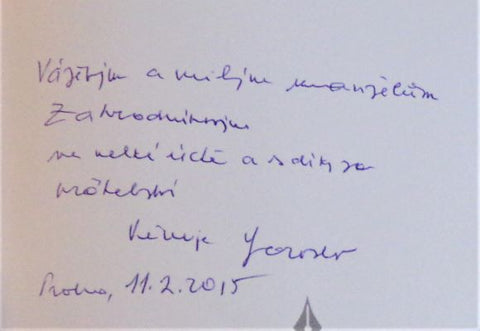 Váženým a milým manželům
Zahradníkovým
ve velké úctě a s díky za
přátelství
Věnuje
Praha, 11.2.2015